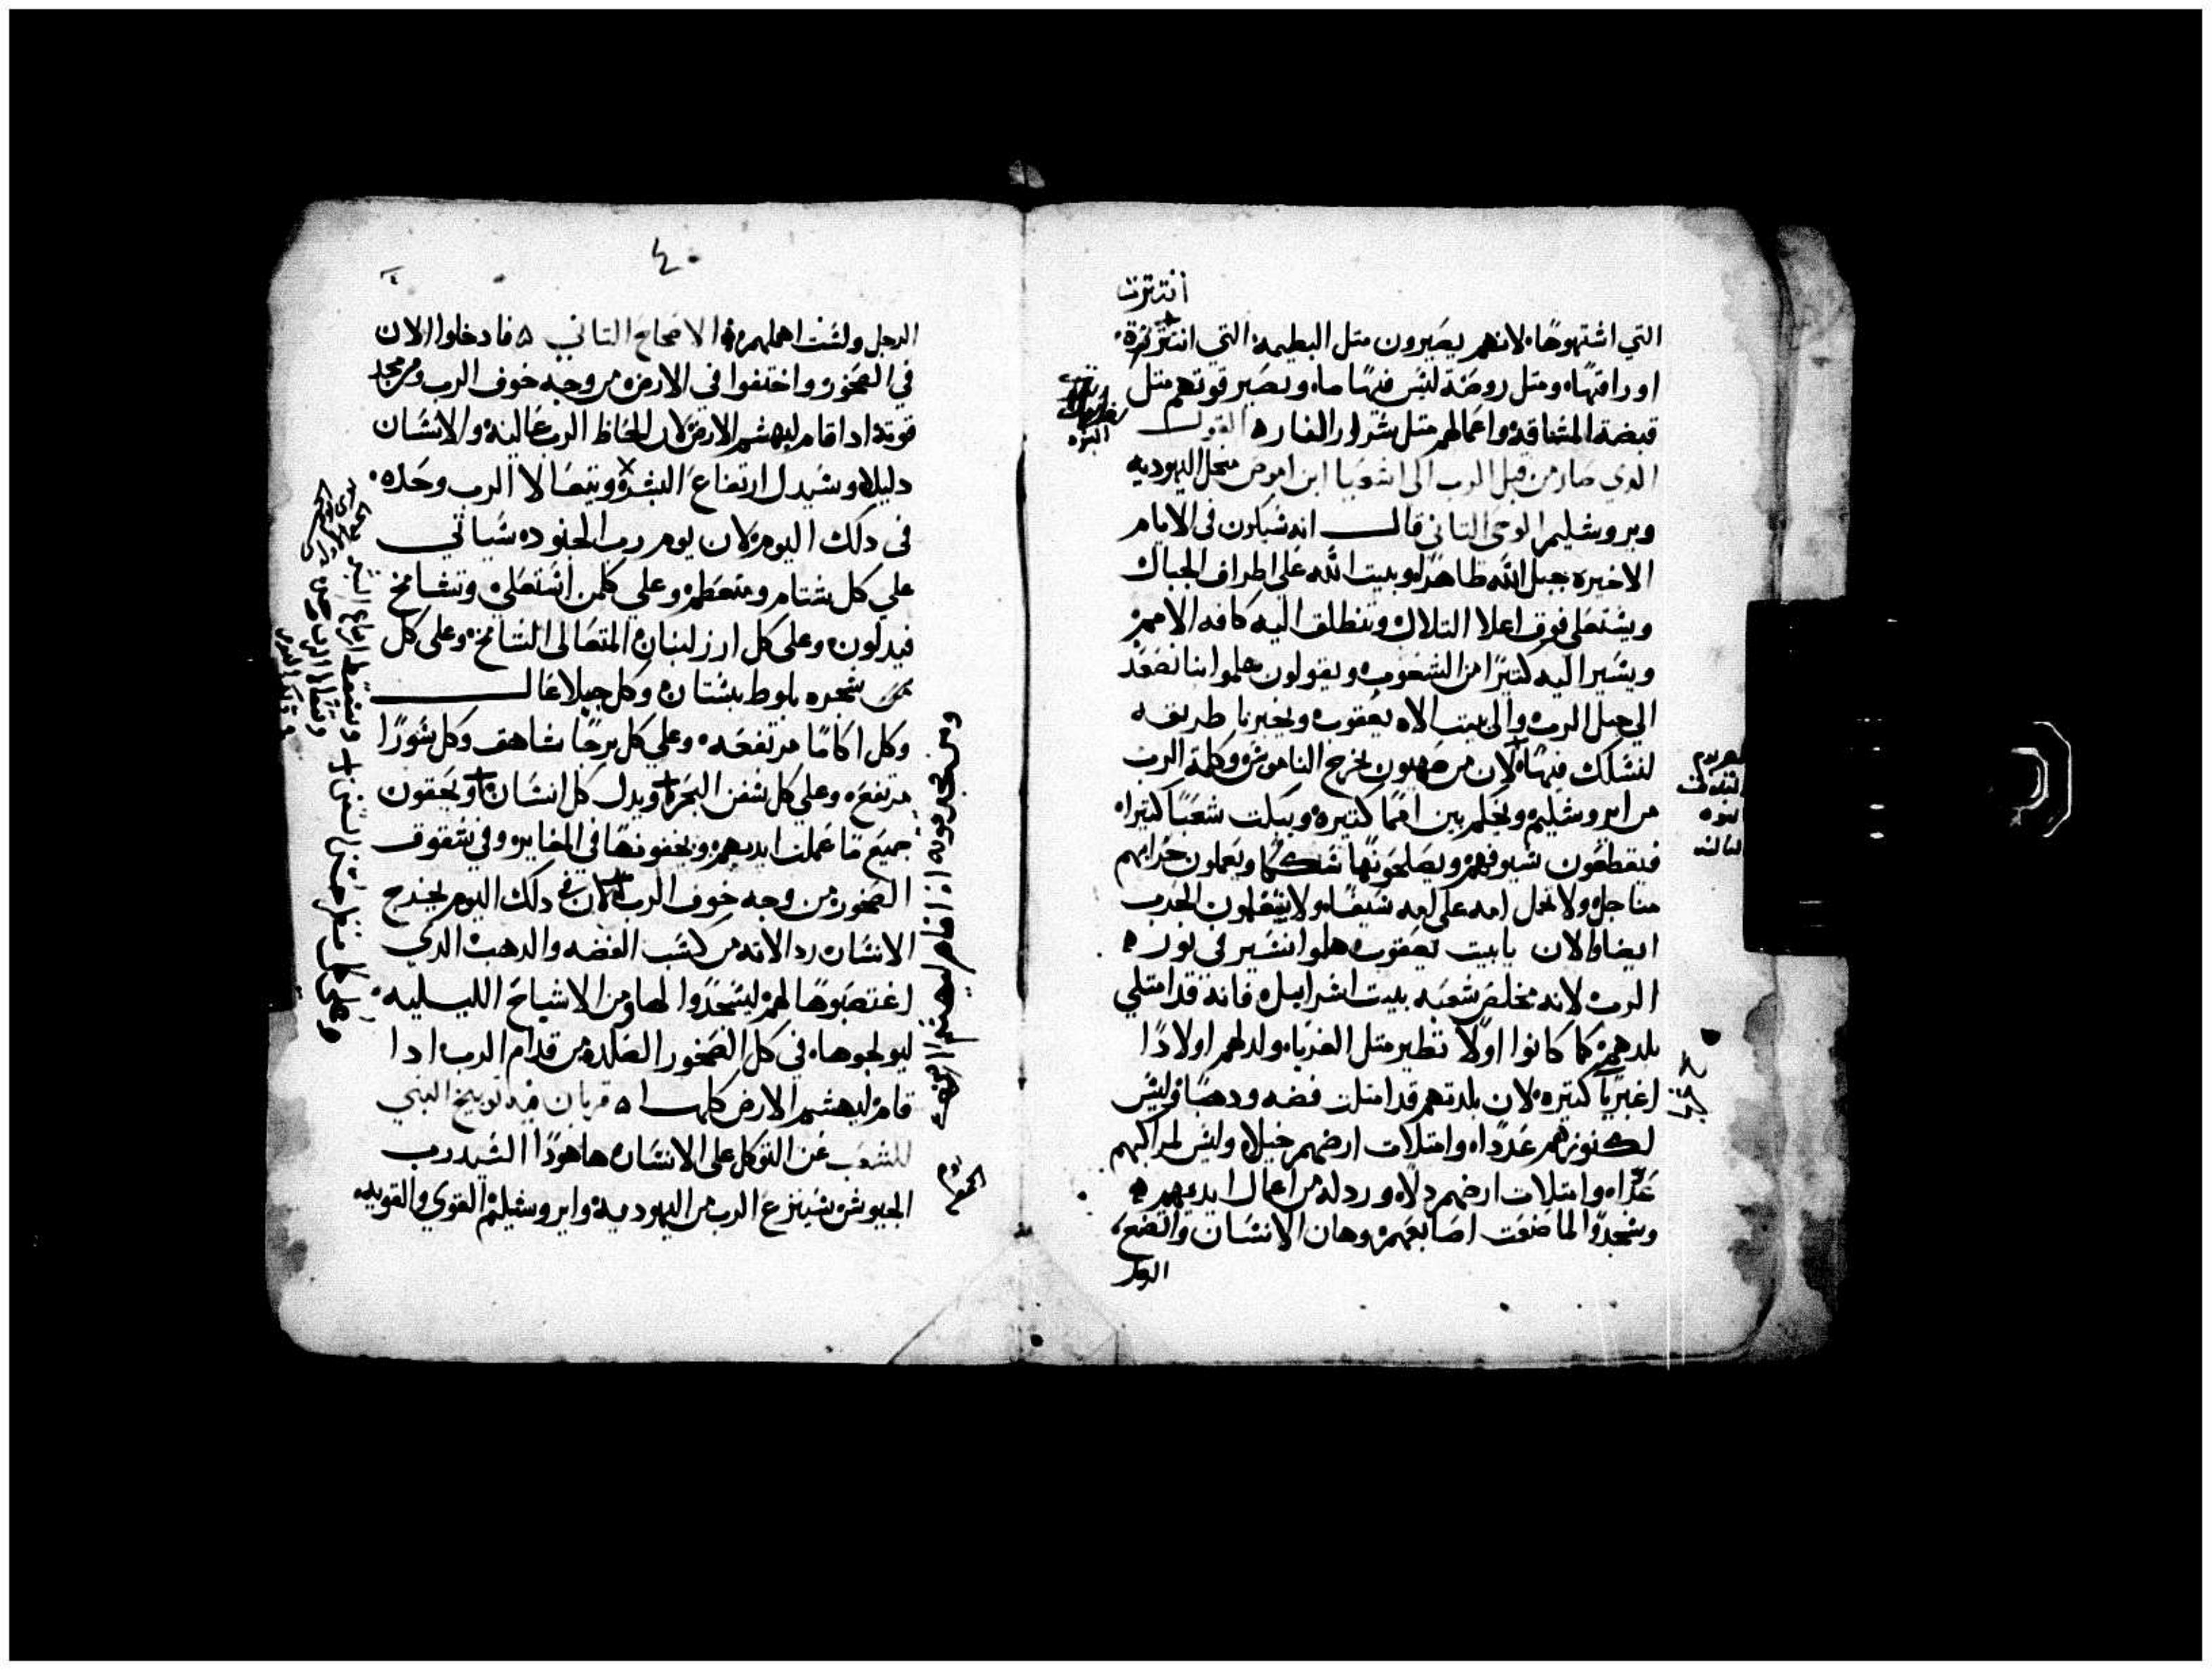 انتترت
التي اشتهوها لانهم يصيرون متل البطمه التي انتترة
اوراقها ومتل روضة ليس فيها ماء وتصير قوتهم متل
قبضة المشاقة واعمالهم متل شرار النار القول
الدي صار من قبل الرب الى اشعيا ابن اموص من اليهوديه
ويروشليم الوحي التاني قال انه سيكون في الايام
الاخيره جبل الله ظاهرا وبيت الله على اطراف الجبال
ويستعلي فوق اعلا التلال وتنطلق اليه كافه الامم
ويسير اليه كتيرا من الشعوب ويقولون هلموا بنا نصعد
الى جبل الرب والى بيت الاه يعقوب ويخبرنا طريقه
لنسلك فيها لان من صهيون يخرج الناموس وكلمة الرب
من ايروشليم ويحكم بين امما كتيره ويبكت شعبا كتيرا
فيقطعون سيوفهم ويصلحونها سككا ويعملون حرابهم
مناجل ولا تحمل امه على امه سيفا ولا يتعلمون الحرب
ايضا والان يابيت يعقوب هلموا نسير في نور
الرب لانه مخلص شعبه بيت اسراييل فانه قد امتلي
بلدهم كما كانوا اولا تطير متل الغربا وولد لهم اولادا
اغبريا كتيره لان بلدتهم قد امتلت فضه ودهبا وليس
لكنوزهم عددا وامتلات ارضهم خيلا وليس لمراكبهم
عددا وامتلات ارضهم ردله من اعمال ايديهم
وسجدوا لما صنعت اصابعهم وهان الانسان واتضع
الرجل
٤٠
الرجل ولست اهملهم الاصحاح التاني فادخلوا الان
في الصخور واختفوا في الارض من وجه خوف الرب ومن مجد
قوته ادا قام ليهشم الارض لان الحاظ الرب عاليه والانسان
دليلا وسيدل ارتفاع البشر ويتعالا الرب وحده
في دلك اليوم لان يوم رب الجنود سياتي
علي كل شتام ومتعظم وعلي كلمن استعلي وتشامخ
فيدلون وعلى كل ارز لبنان المتعالى الشامخ وعلى كل
شجره بلوط بستان وكل جبلا عال
وكل اكاما مرتفعه وعلي كل برجا شاهق وكل سورا
مرتفع وعلي كل سفن البحر ويدل كل انسان ويخفون
جميع ما عملت ايديهم ويخفونها في المغاير وفي شقوق
الصخور من وجه خوف الرب لان في دلك اليوم يخرج
الانسان ردالاته من كسب الفضه والدهب الدي
اغتصبوها لهم ليسجدوا لها ومن الاشباح الليليه
ليولجوها في كل الصخور الصلده من قدام الرب ادا
قام ليهشم الارض كلها قربان فيه توبيخ النبي
للشعب عن التوكل على الانسان هاهودا السيد رب
الجيوش سينزع الرب من اليهوديه وايروشليم القوي والقويه
ومن مجد قوته ادا قام ليهشم الارض